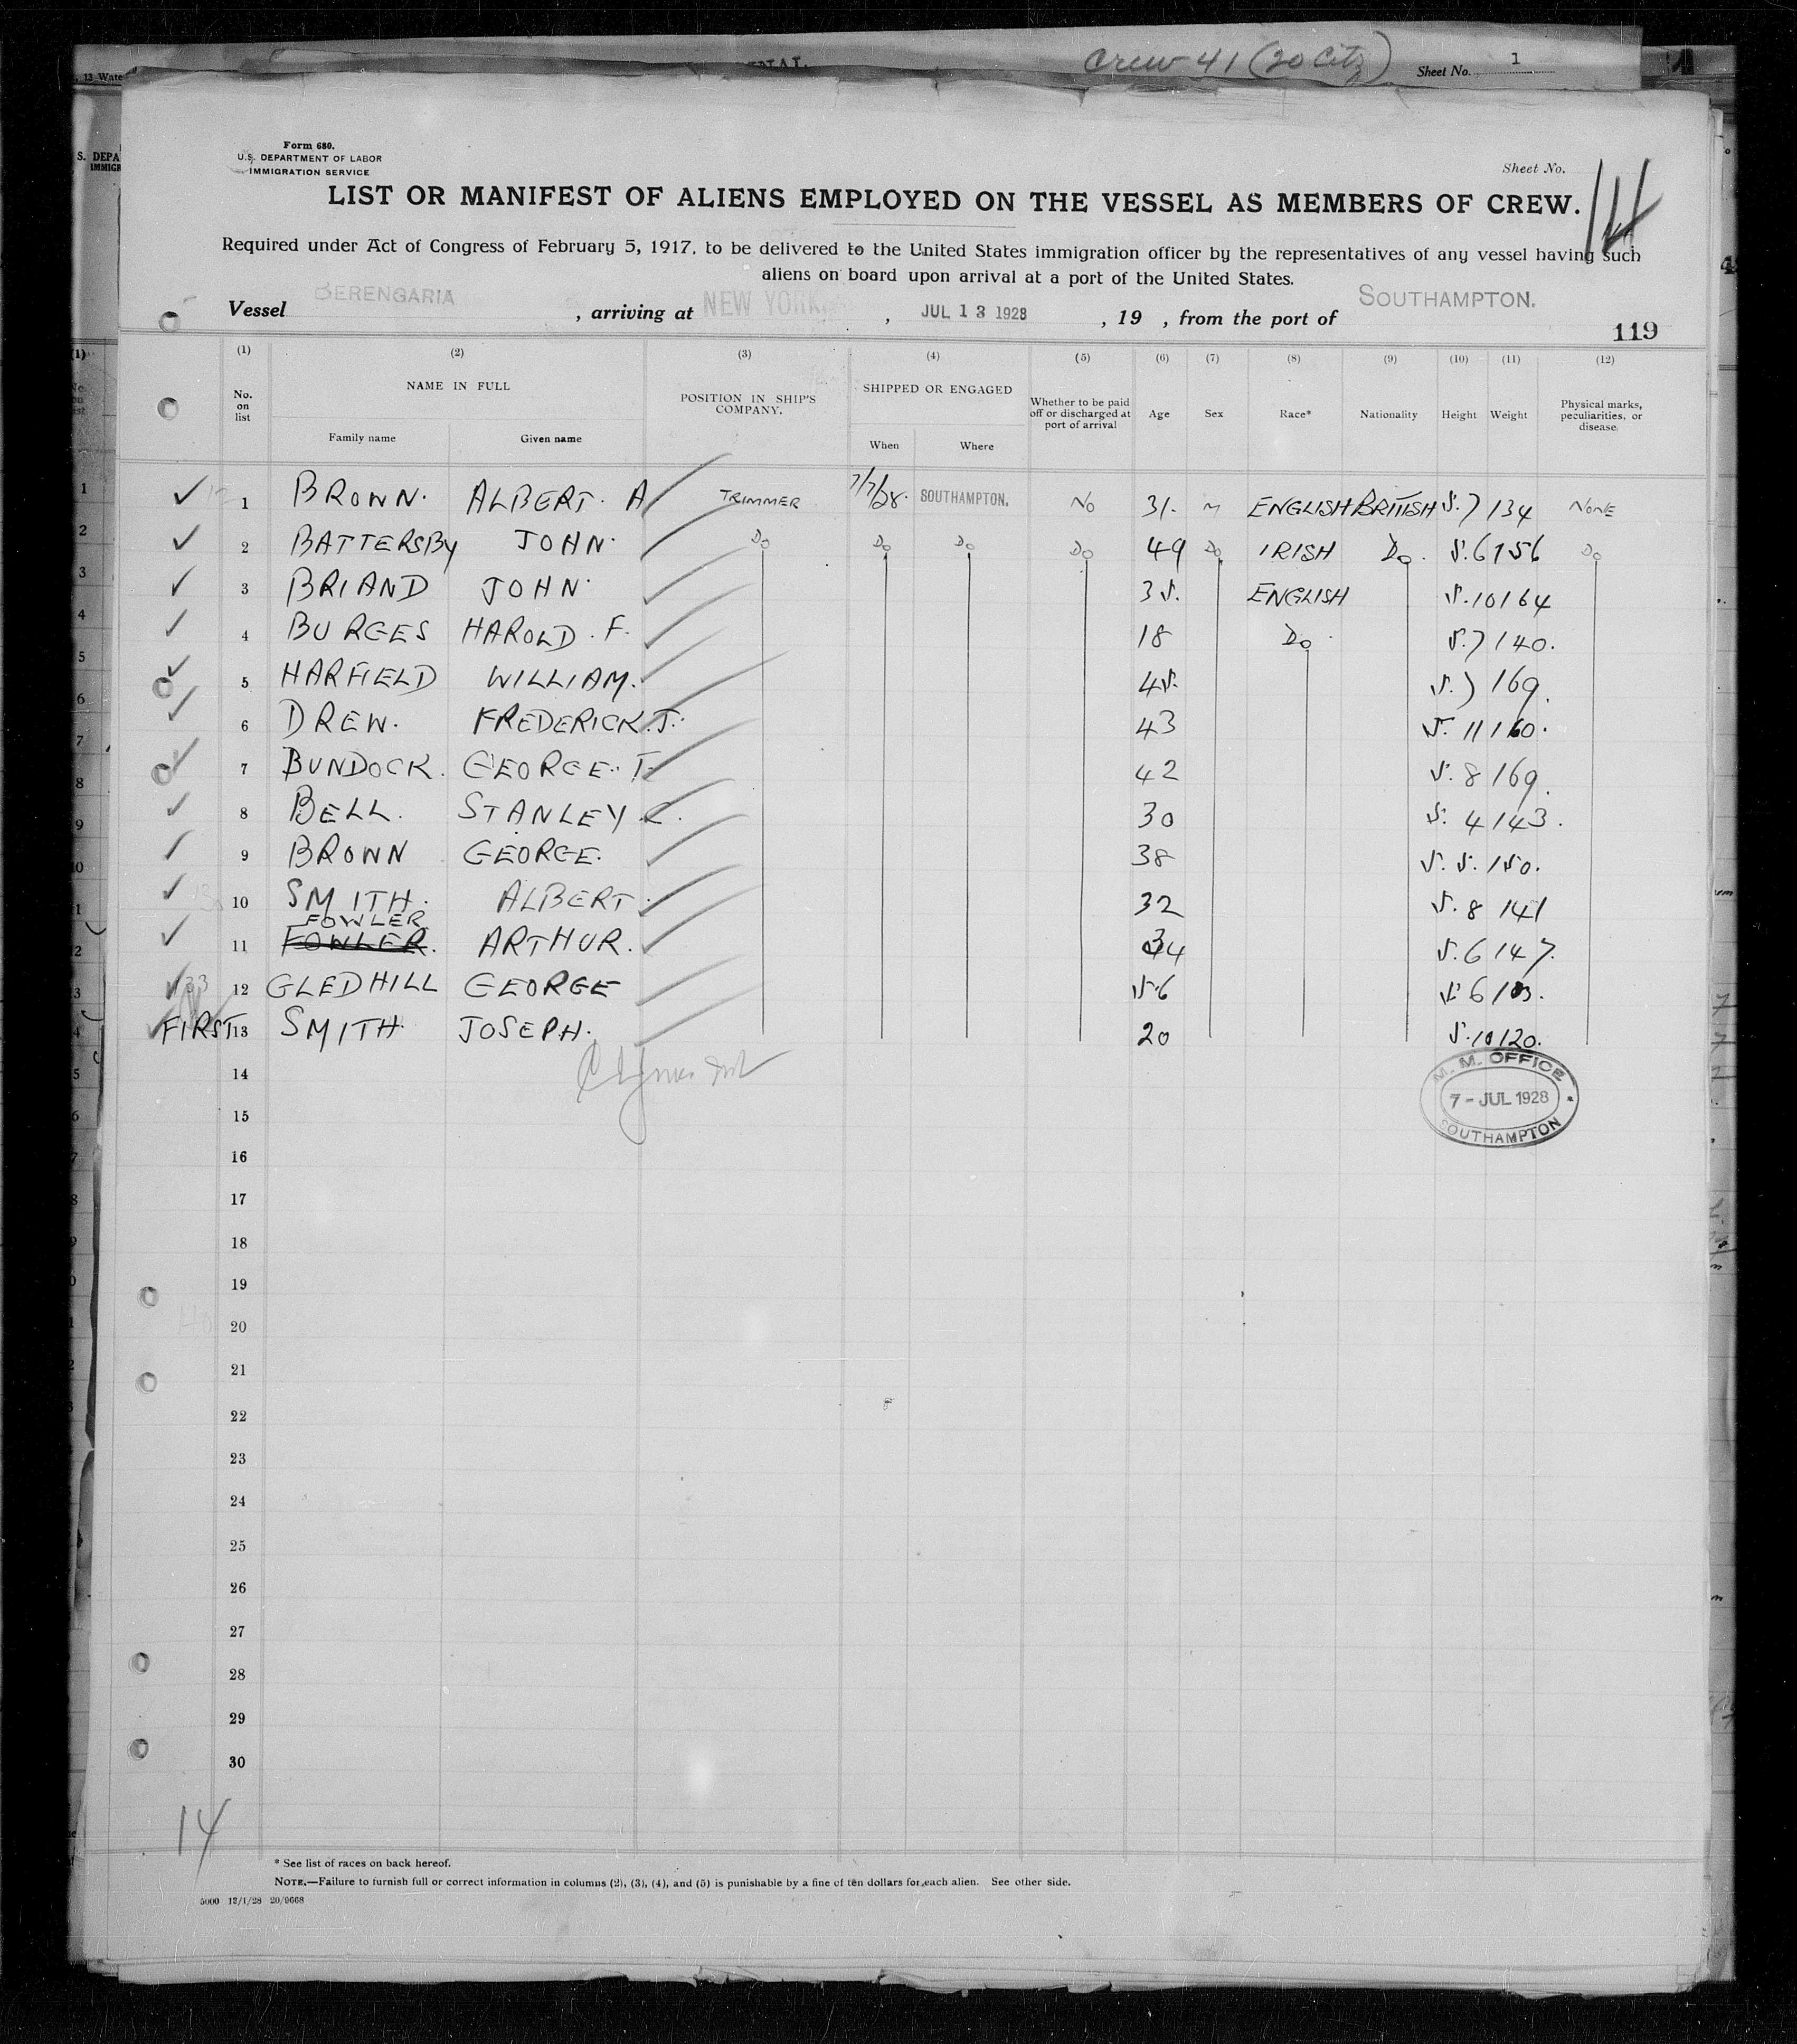 Crew 41 (20 Citz)
Sheet No. 1
, 13 Wate
S. DEPA
IMMIGR
Form 680.
U.S. DEPARTMENT OF LABOR
IMMIGRATION SERVICE
Sheet No.
LIST OR MANIFEST OF ALIENS EMPLOYED ON THE VESSEL AS MEMBERS OF CREW.
Required under Act of Congress of February 5, 1917, to be delivered to the United States immigration officer by the representatives of any vessel having such
aliens on board upon arrival at a port of the United States.
Vessel BERENGARIA , arriving at NEW YORK , JUL 13 1928 , 19 , from the port of SOUTHAMPTON.
119
(1) (2) (3) (4) (5) (6) (7) (8) (9) (10) (11) (12)
No. on list NAME IN FULL Family name Given name POSITION IN SHIP'S COMPANY. SHIPPED OR ENGAGED When Where Whether to be paid off or discharged at port of arrival Age Sex Race* Nationality Height Weight Physical marks, peculiarities, or disease
1 BROWN. ALBERT. A TRIMMER 7/7/28. SOUTHAMPTON. NO 31. M ENGLISH BRITISH 5.7 134 NONE
2 BATTERSBY JOHN. DO DO DO DO 49 DO IRISH DO. 5.6 156 DO
3 BRIAND JOHN. 35. ENGLISH 5.10 164
4 BURGES HAROLD. F. 18 DO. 5.7 140.
5 HARFIELD WILLIAM. 45. 5.7 169.
6 DREW. FREDERICK. J. 43 5.11 160.
7 BUNDOCK. GEORGE. T. 42 5.8 169.
8 BELL. STANLEY. C. 30 5.4 143.
9 BROWN GEORGE. 38 5.5. 150.
10 SMITH. ALBERT. 32 5.8 141
FOWLER
11 FOWLER. ARTHUR. 34 5.6 147.
12 GLEDHILL GEORGE 56 5.6
FIRST 13 SMITH. JOSEPH. 20 5.10 120.
14
M. M. OFFICE
7 - JUL 1928
SOUTHAMPTON
15
16
17
18
19
20
21
22
23
24
25
26
27
28
29
30
14
* See list of races on back hereof.
NOTE.—Failure to furnish full or correct information in columns (2), (3), (4), and (5) is punishable by a fine of ten dollars for each alien. See other side.
5000 12/1/28 20/9668